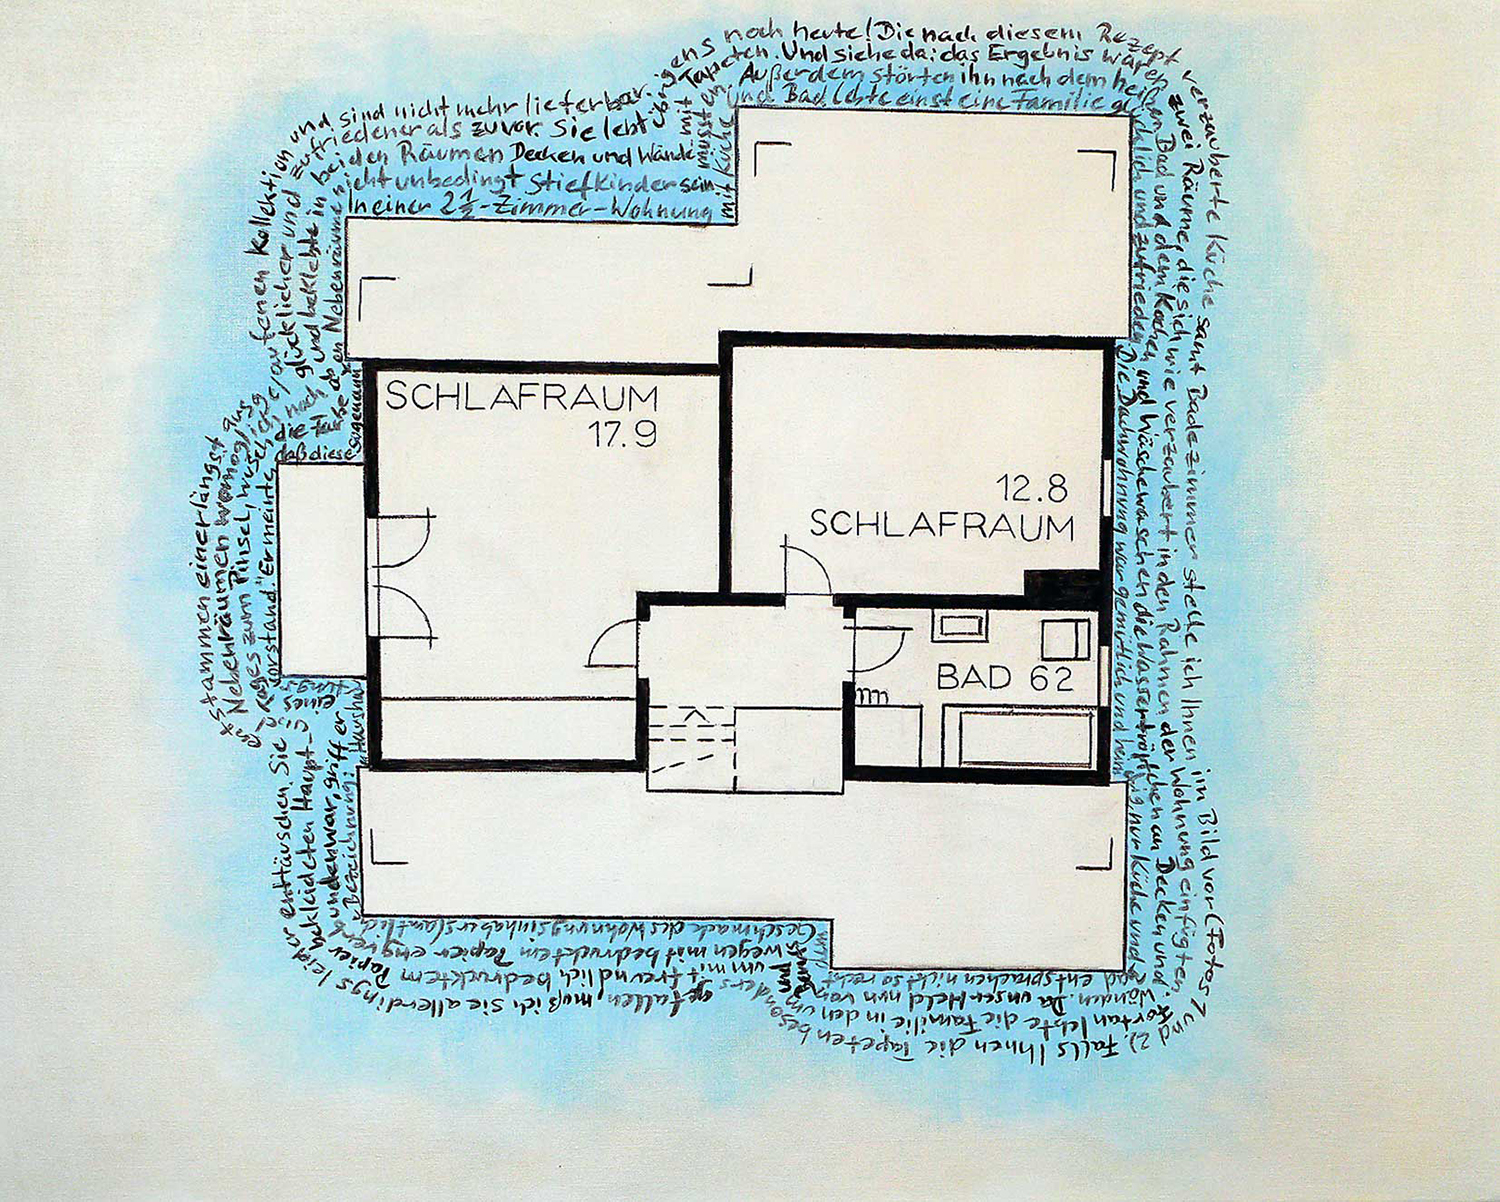 In einer 2½-Zimmer-Wohnung
mit Küche
und Bad lebte einst eine Familie glücklich und zufrieden.
Die Dachwohnung war gemütlich und heimelig, nur Küche und
Bad entsprachen nicht so recht
dem
Geschmack des Wohnungsinhabers (amtliche
Bezeichnung: Haushaltungs
vorstand." Er meinte,
daß diese
sogenannten
Nebenräume
nicht unbedingt Stiefkinder sein
müssten.
Außerdem störten ihn nach dem heißen
Bad und dem Kochen und Wäschewaschen die Wassertröpfchen an Decken und
Wänden. Da unser Held nun von
und
wegen mit bedrucktem Papier eng verb
unden war, griff er
eines
Tages zum Pinsel, wusch
die Farbe ab
und beklebte in beiden Räumen Decken und Wände
mit Tapeten. Und siehe da: das Ergebnis waren
zwei Räume, die sich wie verzaubert in den Rahmen der Wohnung einfügten.
Fortan lebte die Familie in den
um mit freundlich bedrucktem Papier
bekleideten Haupt-
und
Nebenräumen womöglich
noch glücklicher und zufriedener als zuvor. Sie lebt übrigens
noch heute! Die nach diesem Rezept
verzauberte Küche samt Badezimmer stelle ich Ihnen im Bild vor (Fotos 1 und
2). Falls Ihnen die Tapeten besonders
gefallen, muß ich Sie allerdings leider
enttäuschen. Sie
entstammen einer längst aus
gelaufenen Kollektion und
sind nicht mehr lieferbar.
SCHLAFRAUM
17.9
12.8
SCHLAFRAUM
BAD 62